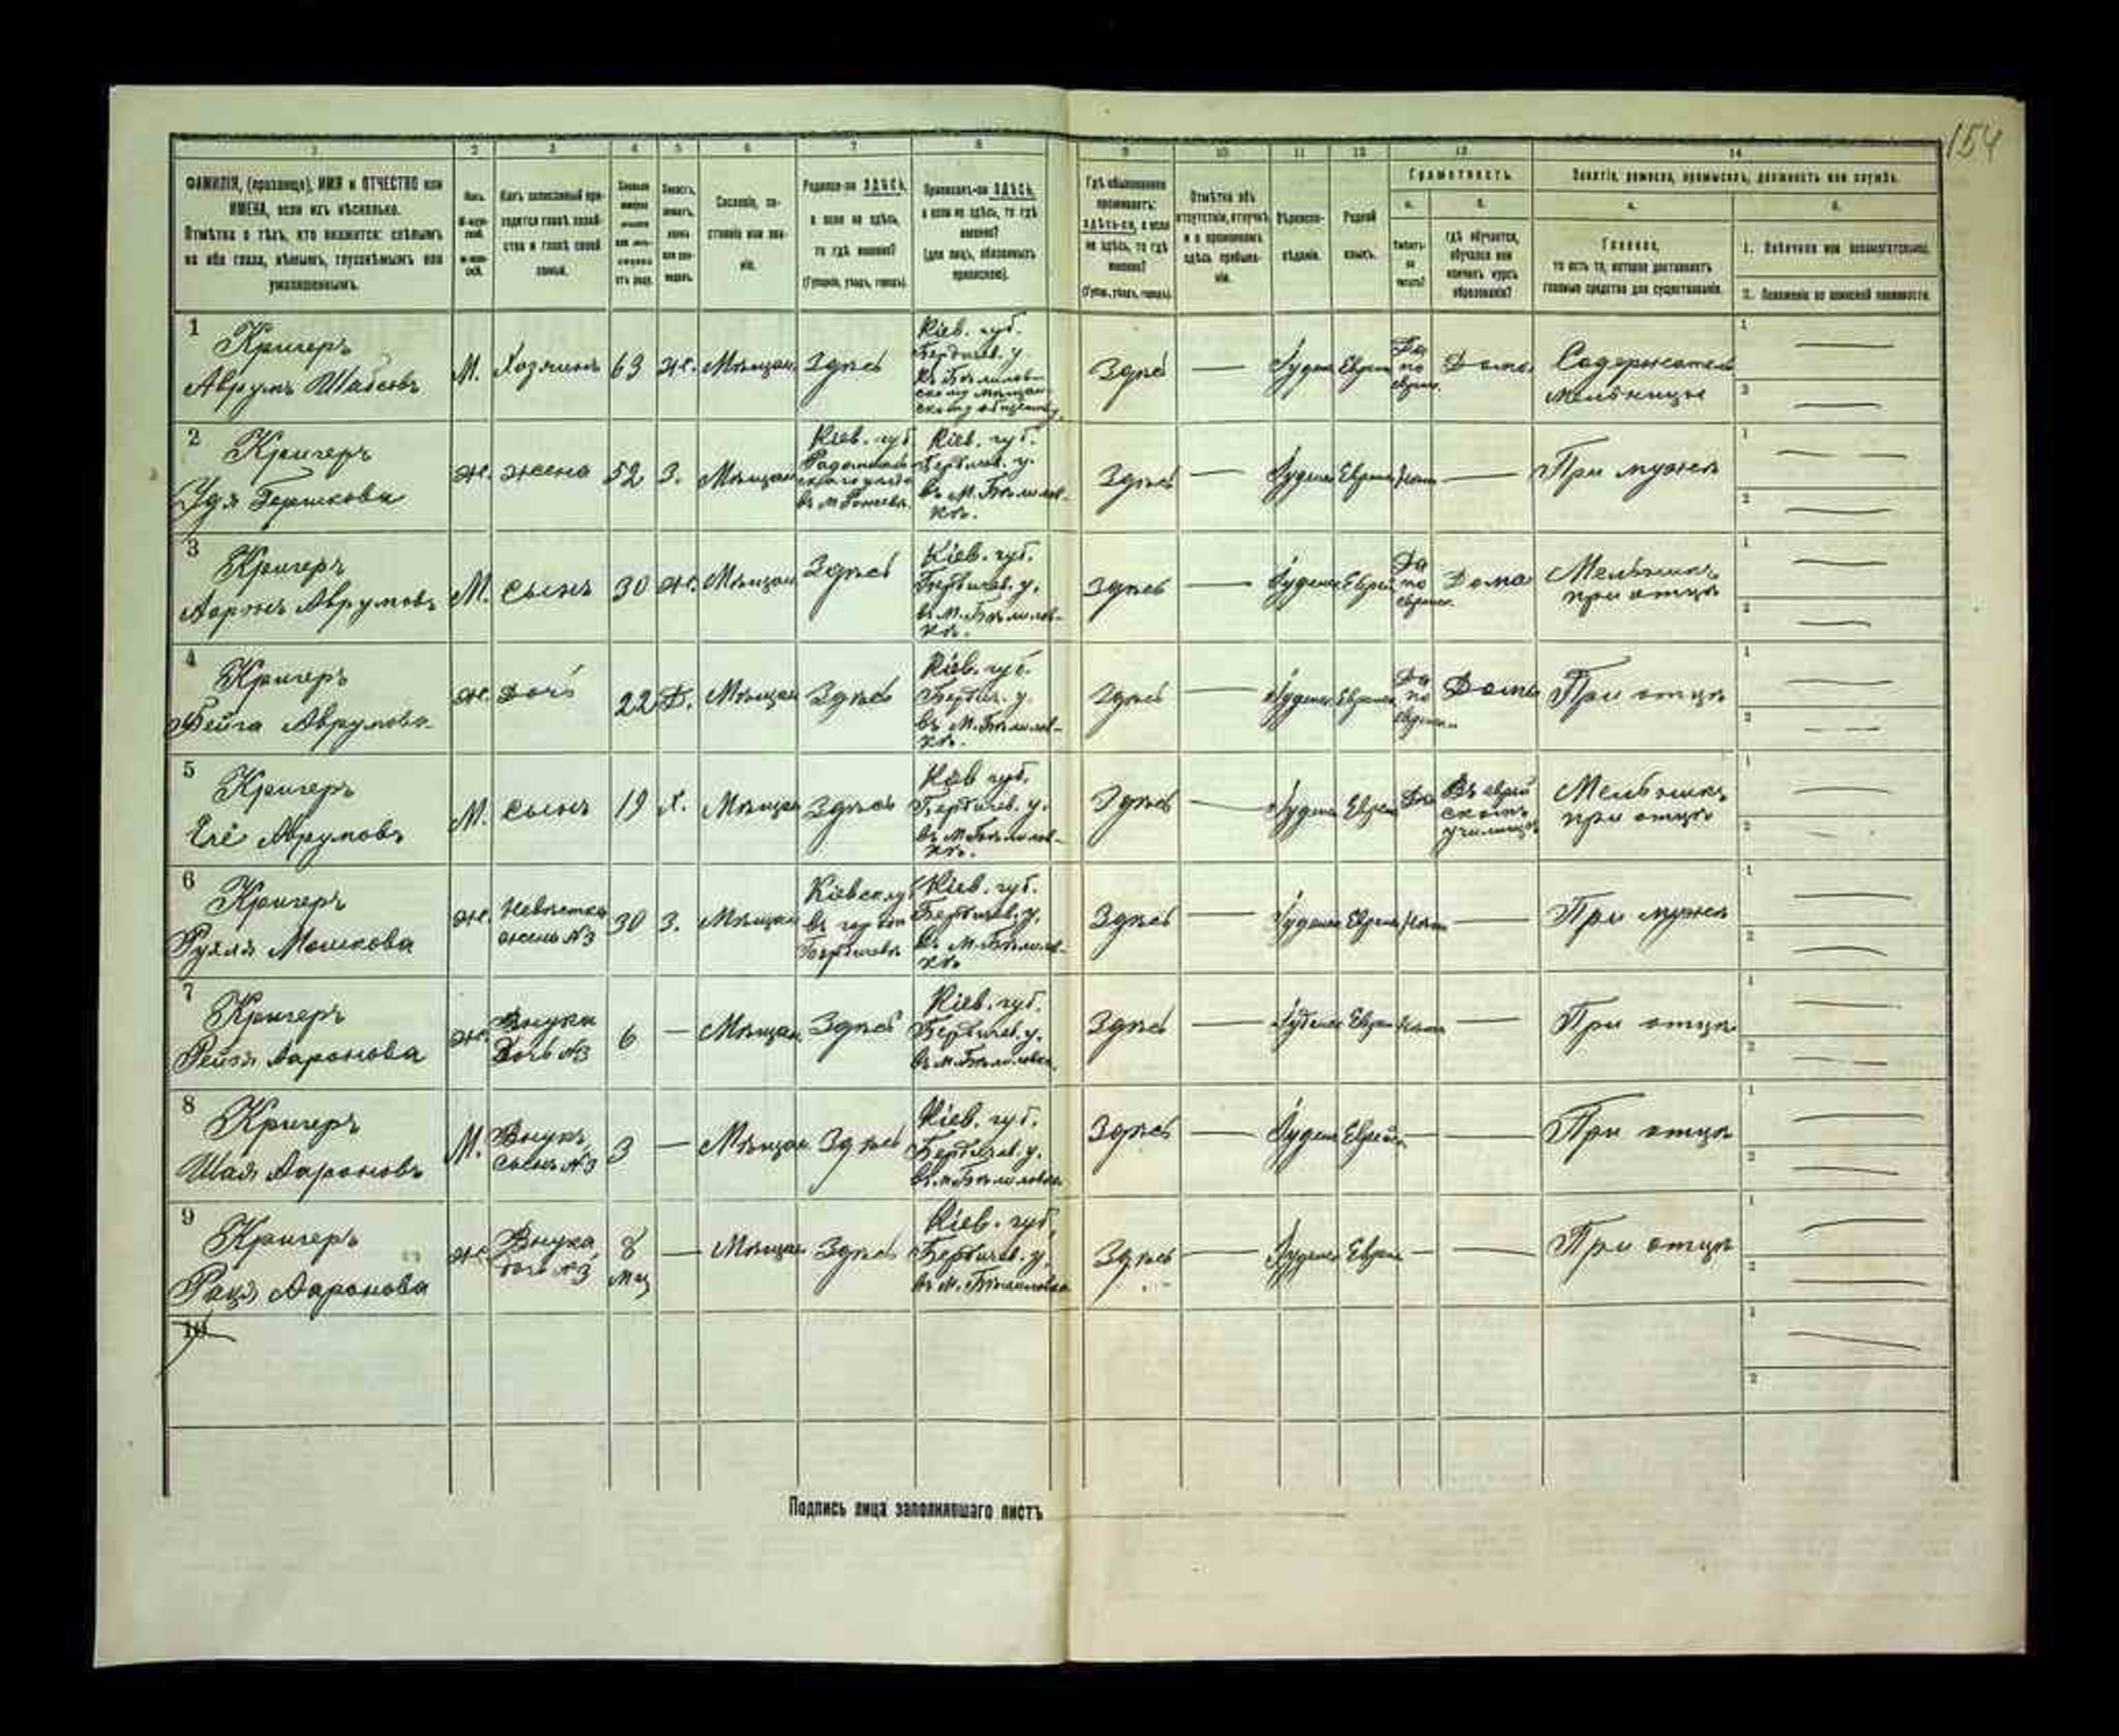 154
1 2 3 4 5 6 7 8 9 10 11 12 13 14
ФАМИЛІЯ, (прозвище), ИМЯ и ОТЧЕСТВО или
ИМЕНА, если ихъ нѣсколько.
Отмѣтка о тѣхъ, кто окажется: слѣпымъ
на оба глаза, нѣмымъ, глухонѣмымъ или
умалишеннымъ.
Полъ.
Какъ записанный при-
ходится главѣ хозяй-
ства и главѣ своей
семьи.
Сословіе, со-
стояніе или зва-
ніе.
Родился-ли ЗДѢСЬ,
а если не здѣсь,
то гдѣ именно?
(Губернія, уѣздъ, городъ).
Приписанъ-ли ЗДѢСЬ,
а если не здѣсь, то гдѣ
именно?
(для лицъ, обязанныхъ
припиской).
Гдѣ обыкновенно
проживаетъ:
ЗДѢСЬ-ли, а если
не здѣсь, то гдѣ
именно?
(Губ., уѣздъ, городъ).
Отмѣтка объ
отсутствіи, отлучкѣ
и о временномъ
здѣсь пребыва-
ніи.
Вѣроиспо-
вѣданіе.
Родной
языкъ.
Грамотность.
а. б.
Умѣетъ-
ли
читать?
гдѣ обучается,
обучался или
кончилъ курсъ
образованія?
Занятіе, ремесло, промыселъ, должность или служба.
а. б.
Главное,
то есть то, которое доставляетъ
главныя средства для существованія.
1. Побочное или вспомогательное.
2. Положеніе по воинской повинности.
1
Кригеръ
Аврумъ Шабсовъ
М. Хозяинъ 63 Ж. Мѣщан. Здѣсь
Кіев. губ.
Бердичев. у.
Здѣсь — Іудей Еврей
Да
по
еврей.
Дома
Содержатель
мельницы
2
Кригеръ
Удя Гершкова
ж. жена 52 З. Мѣщан
Кіев. губ.
Кіев. губ.
Бердичев. у.
въ М. Бѣлилов-
кѣ.
Здѣсь — Іудей Еврей Нѣтъ — При мужѣ
3
Кригеръ
Ааронъ Аврумовъ
М. сынъ 30 Ж. Мѣщан Здѣсь
Кіев. губ.
Бердичев. у.
въ М. Бѣлилов-
кѣ.
Здѣсь — Іудей Еврей
Да
по
еврей.
Дома
Мельникъ
при отцѣ
4
Кригеръ
Фейга Аврумова
ж. Дочь 22 Д. Мѣщан Здѣсь
Кіев. губ.
Бердич. у.
въ М. Бѣлилов-
кѣ.
Здѣсь — Іудей Еврей
Да
по
еврей.
Дома
При отцѣ
5
Кригеръ
Аврумовъ
М. сынъ 19 Х. Мѣщан Здѣсь
Кіев губ.
Бердичев. у.
въ М. Бѣлилов-
кѣ.
Здѣсь — Іудей Еврей Да
Въ еврей
скомъ
училищѣ
Мельникъ
при отцѣ
6
Кригеръ
Рухля Мошкова
ж. Невѣстка
жена №3
30 З. Мѣщан
Кіевск. губ
въ гор
Бердичевѣ
Кіев. губ.
Бердичев. у.
въ М. Бѣлилов-
кѣ
Здѣсь — Іудей Еврей Нѣтъ — При мужѣ
7
Кригеръ
Рейзя Ааронова
ж. Внука
Дочь №3
6 — Мѣщан Здѣсь
Кіев. губ.
Бердичев. у.
въ М. Бѣлиловкѣ
Здѣсь — Іудей Еврей Нѣтъ — При отцѣ
8
Кригеръ
Шая Аароновъ
М. Внукъ
сынъ №3
3 — Мѣщан Здѣсь
Кіев. губ.
Бердичев. у.
въ м. Бѣлиловкѣ
Здѣсь — Іудей Еврей — — При отцѣ
9
Кригеръ
Ааронова
ж. Внука
дочь №3
8
мѣс
— Мѣщан Здѣсь
Кіев. губ.
Бердичев. у.
въ М. Бѣлиловкѣ
Здѣсь — Іудей Еврей — — При отцѣ
10
Подпись лица заполнившаго листъ